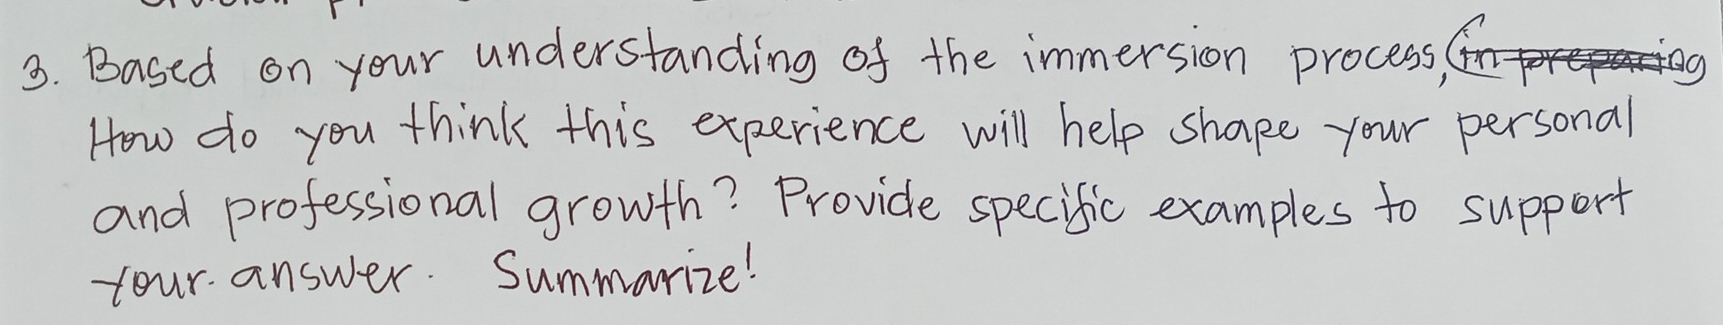 3. Based on your understanding of the immersion process, (in preparing
How do you think this experience will help shape your personal
and professional growth? Provide specific examples to support
your answer. Summarize!